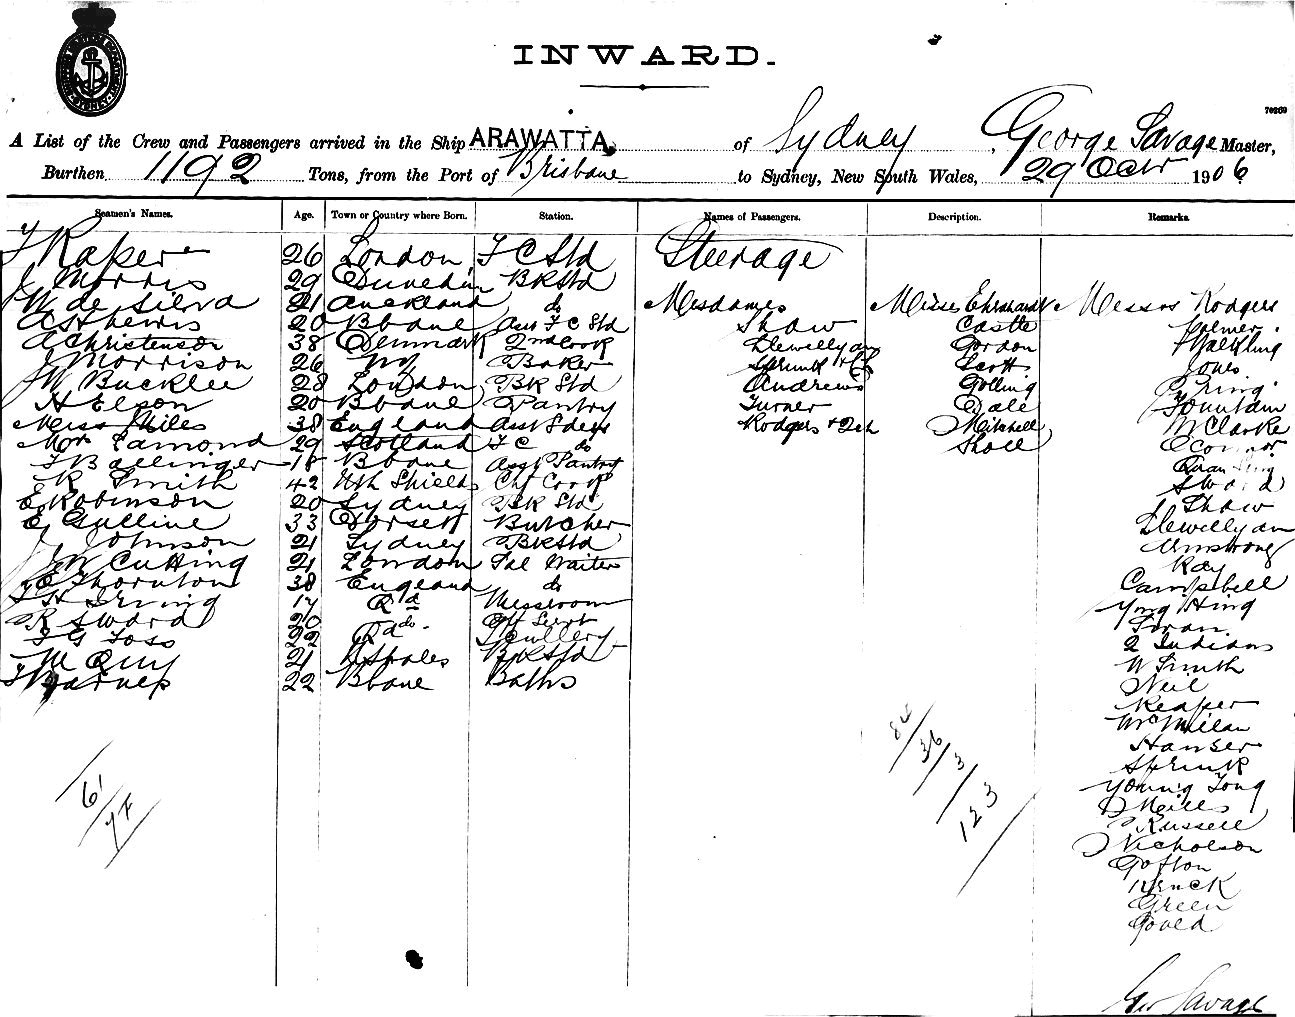 INWARD.
70269
A List of the Crew and Passengers arrived in the Ship ARAWATTA of Sydney, George Savage Master,
Burthen 1192 Tons, from the Port of Brisbane to Sydney, New South Wales, 29 Octr 1906
Seamen's Names. Age. Town or Country where Born. Station. Names of Passengers. Description. Remarks.
F Raper 26 London F C Std Steerage
J Morris 29 Dunedin BKStd
W de Silva 21 Auckland do Mesdames Misses Ehrhardt Messrs Rodgers
A St Lewis 20 Bbane Asst F C Std Shaw Castle Palmer
A Christenson 38 Denmark 2nd Cook Llewellyan Gordon Walkling
J Morrison 26 NZ Baker Sprink Scott Jones
W Bucklee 28 London BK Std Andrews Golling Pring
H Elson 20 Bbane Pantry Turner Dale Fountain
Miss Miles 38 England Asst Sdess Rodgers + 2ch Mitchell W Clarke
Mor Edmond 29 Scotland F C do Sholl OConnor
F Ballinger 18 Bbane Asst Pantry
R Smith 42 Nth Shields Chf Cook Sword
E Robinson 20 Sydney BK Std Shaw
E Gulline 33 Dorset Butcher Llewellyan
J Johnson 21 Sydney BKStd Armstrong
J W Cutting 21 London Sal Waiter Kay
E Thornton 38 England do Campbell
F H Irving 17 Qld Messroom Ying Hing
R Sword 20 do Off Servt Swan
F G Foss 22 Qld Scullery 2 Indians
M Quy 21 NSWales BKStd W Smith
F Barnes 22 Bbane Baths Neil
Reaper
McMillan
Hanser
Sprink
Young Tong
Neills
Russell
Nicholson
Gofton
Kenck
Green
Gould
84/36/3/123
61/74
Geo Savage